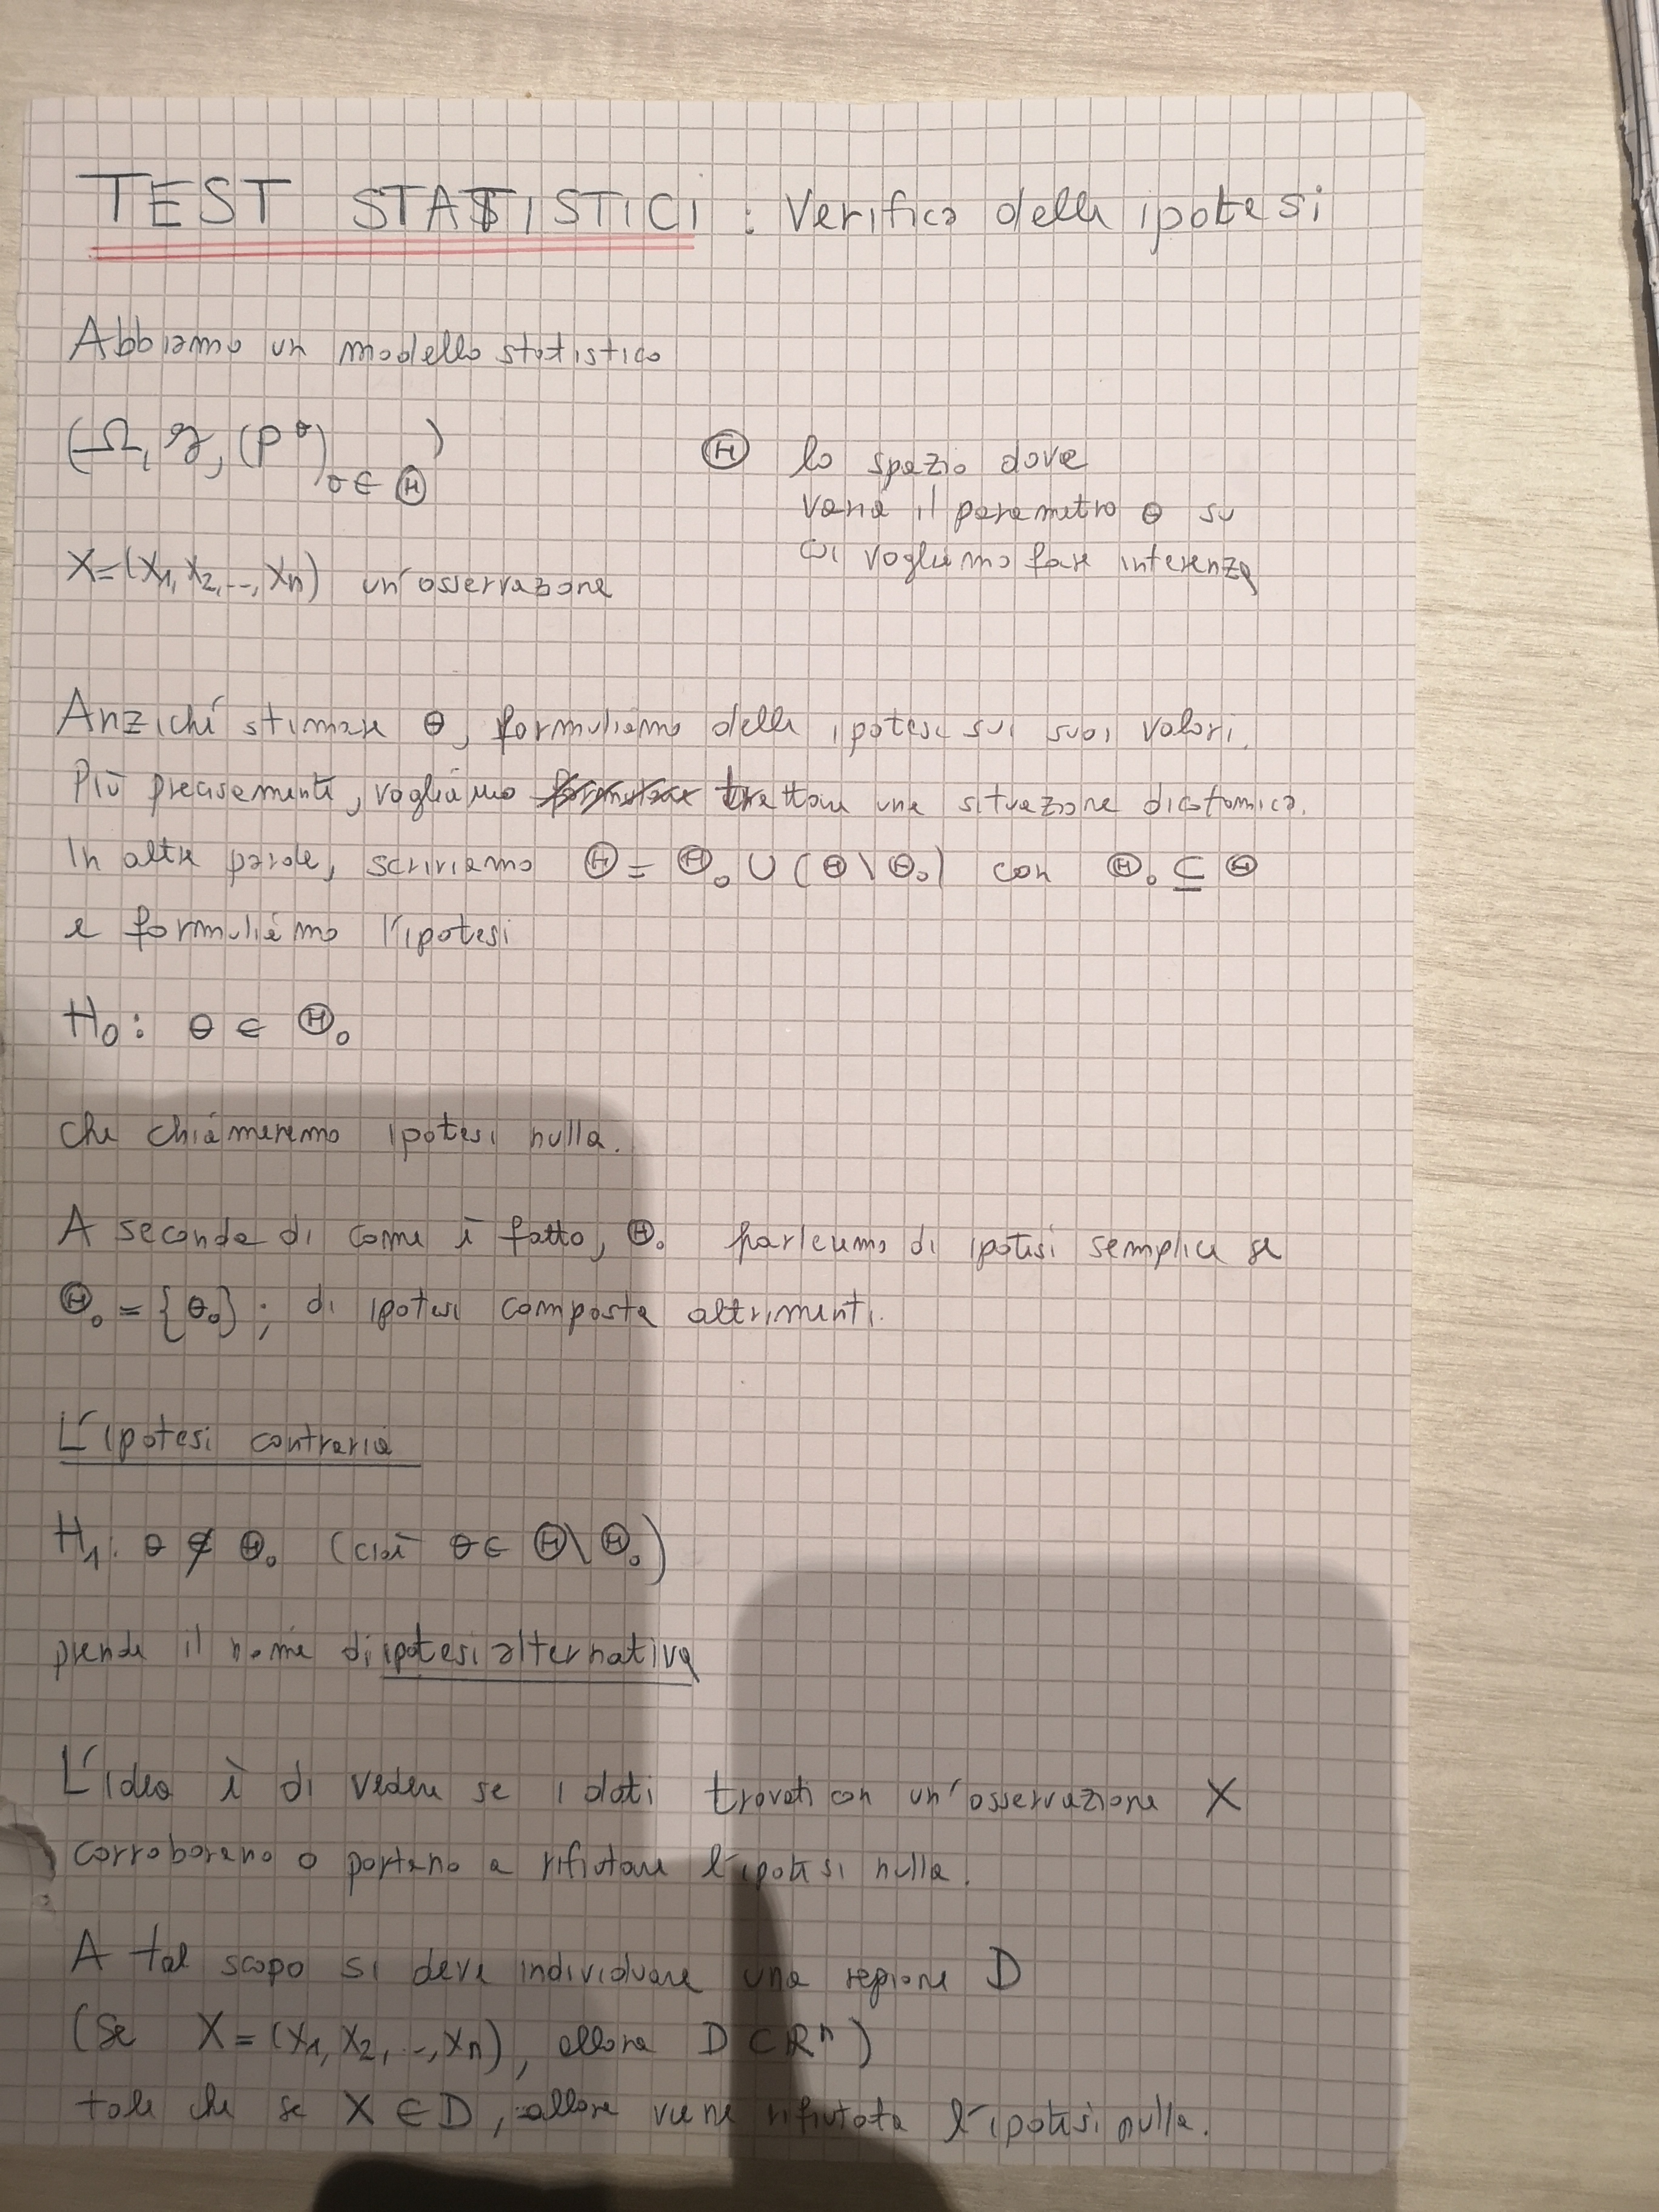 TEST STATISTICI : Verifica delle ipotesi
Abbiamo un modello statistico
(Ω, F, (P^θ)_{θ ∈ Θ})
Θ lo spazio dove
varia il parametro θ su
cui vogliamo fare inferenza
X=(X₁, X₂, ..., Xn) un'osservazione
Anziché stimare θ, formuliamo delle ipotesi sui suoi valori.
Più precisamente, vogliamo trattare una situazione dicotomica.
In altre parole, scriviamo Θ = Θ₀ ∪ (Θ \ Θ₀) con Θ₀ ⊆ Θ
e formuliamo l'ipotesi
H₀: θ ∈ Θ₀
che chiameremo ipotesi nulla.
A seconda di come è fatto, Θ₀ parleremo di ipotesi semplice se
Θ₀ = {θ₀} ; di ipotesi composta altrimenti.
L'ipotesi contraria
H₁: θ ∉ Θ₀ (cioè θ ∈ Θ \ Θ₀)
prende il nome di ipotesi alternativa
L'idea è di vedere se i dati trovati con un'osservazione X
corroborano o portano a rifiutare l'ipotesi nulla.
A tal scopo si deve individuare una regione D
(se X = (X₁, X₂, .., Xn), allora D ⊂ ℝⁿ)
tale che se X ∈ D, allora viene rifiutata l'ipotesi nulla.